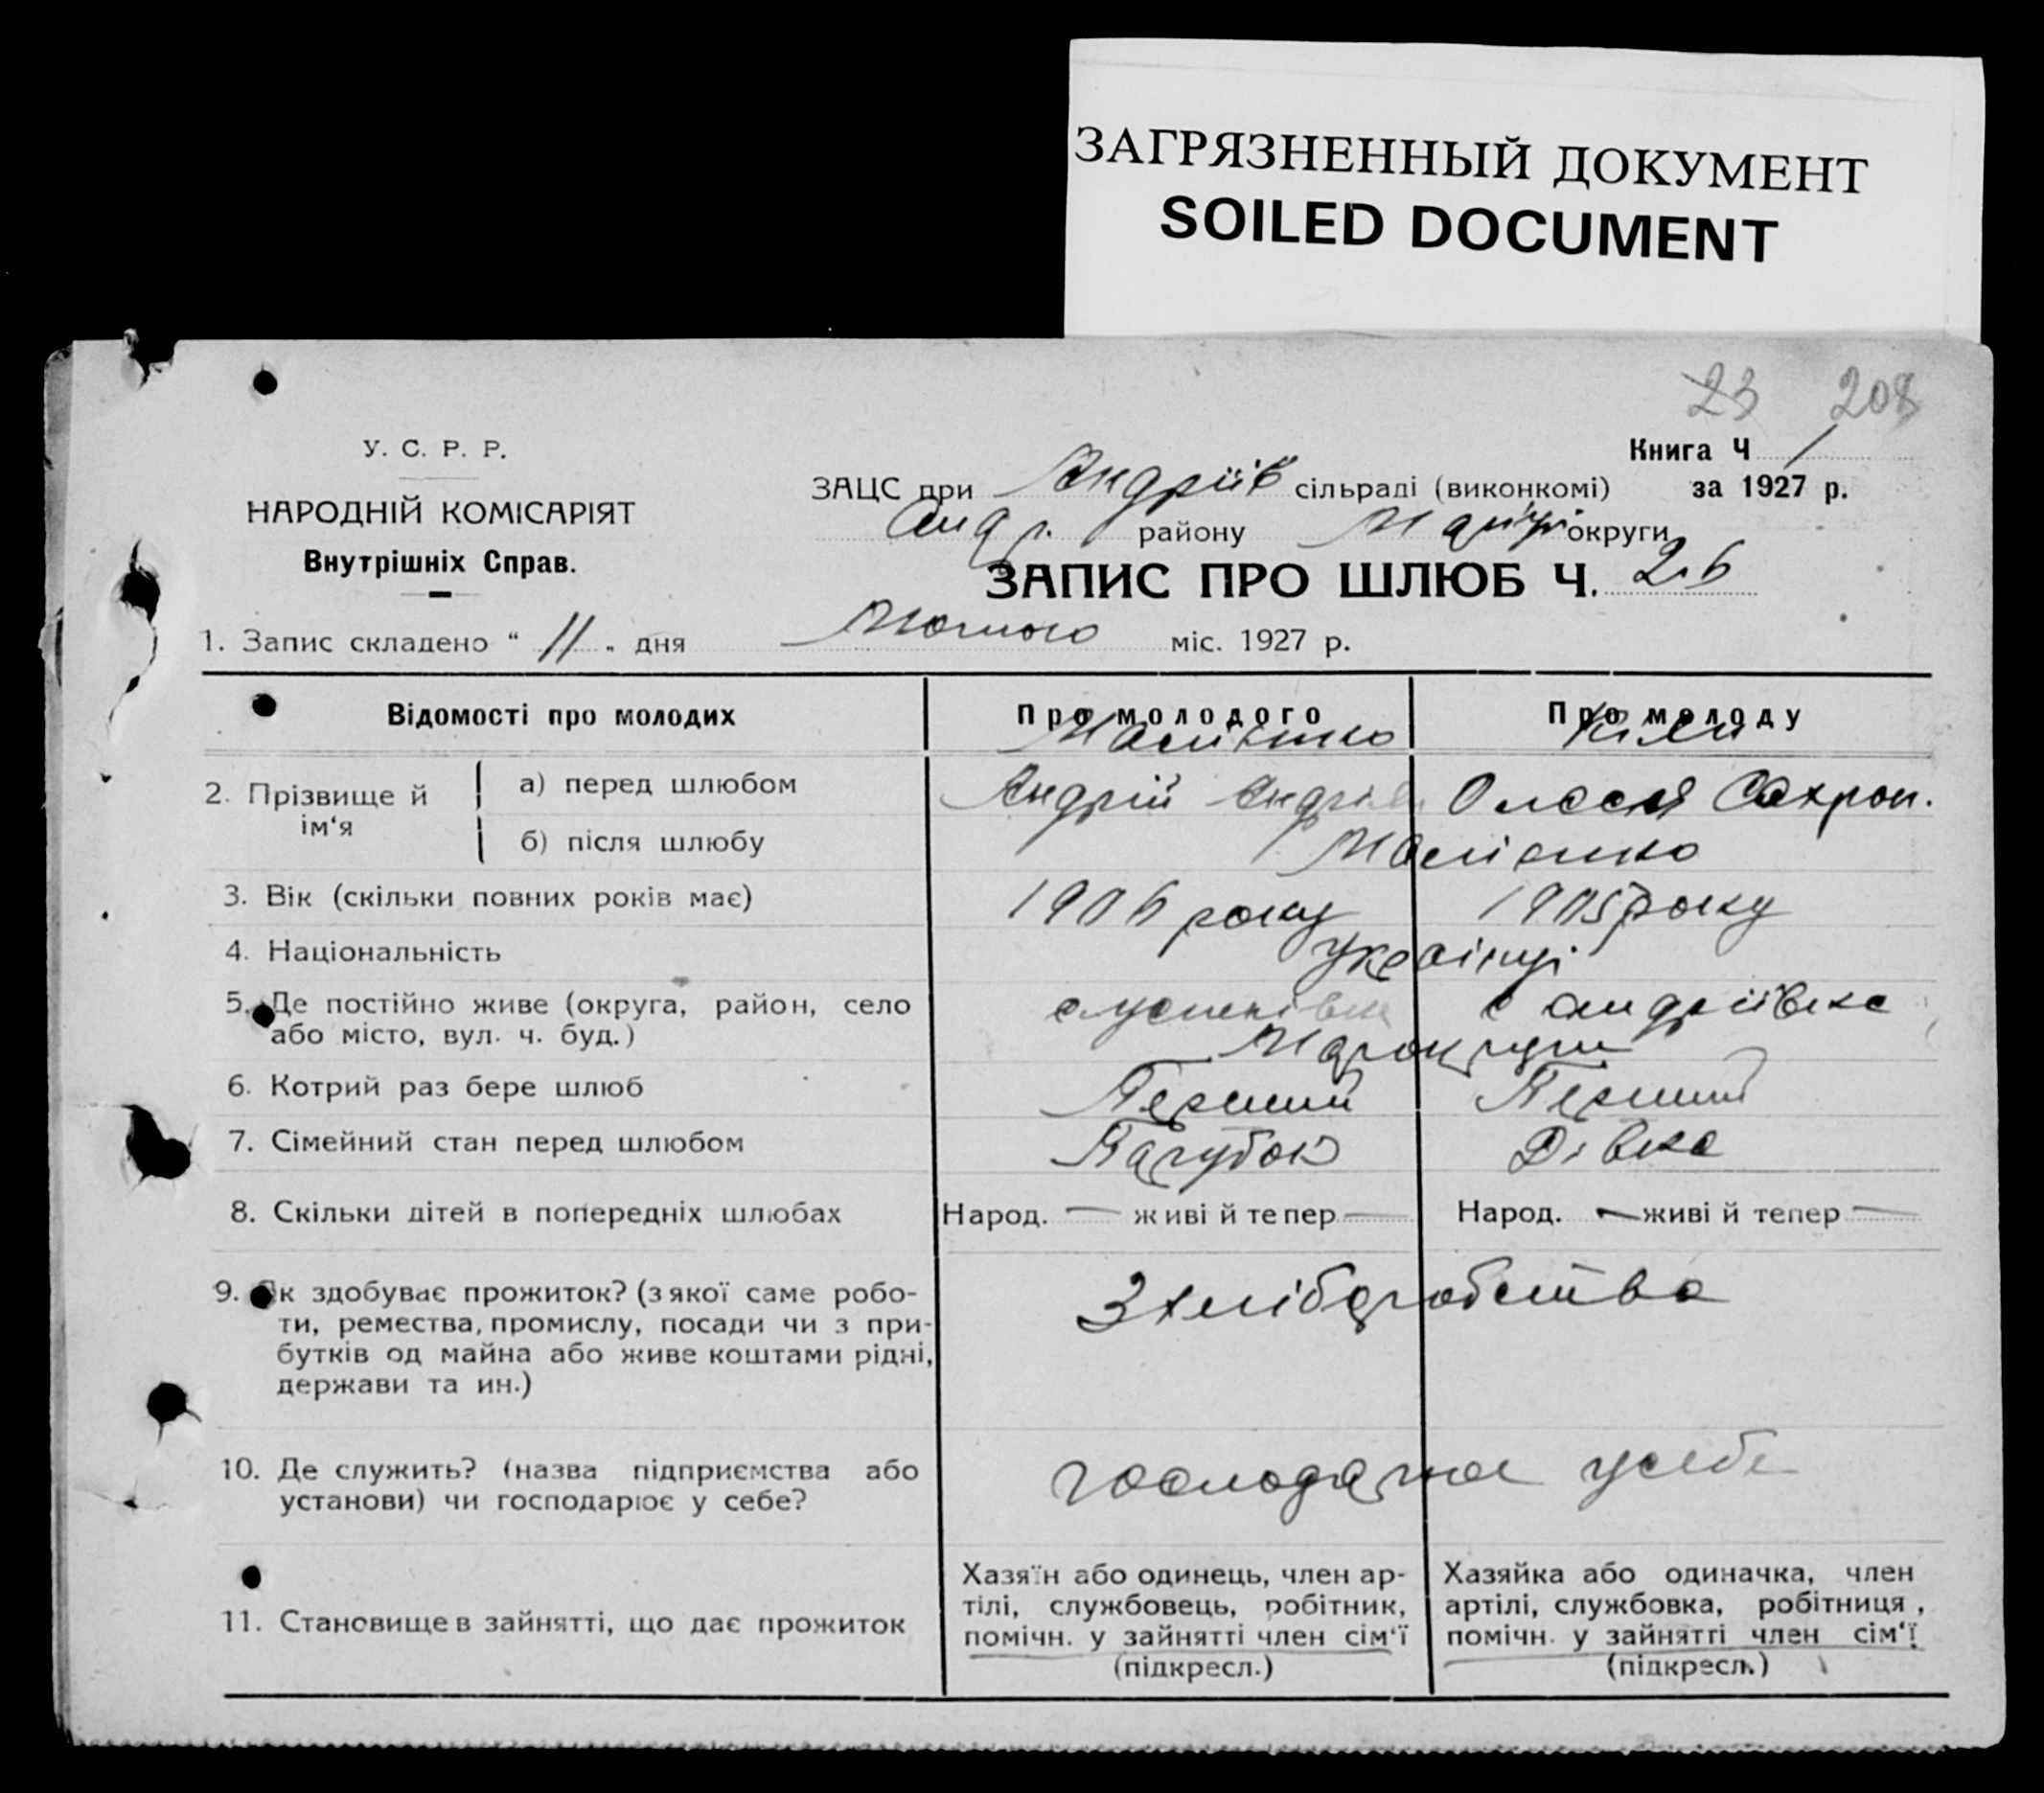 ЗАГРЯЗНЕННЫЙ ДОКУМЕНТ
SOILED DOCUMENT
23 208
У. С. Р. Р.
НАРОДНІЙ КОМІСАРІЯТ
Внутрішніх Справ.
Книга Ч 1
ЗАЦС при Андріїв сільраді (виконкомі) за 1927 р.
Андр. району округи
ЗАПИС ПРО ШЛЮБ Ч. 26
1. Запис складено " 11 " дня Лютого міс. 1927 р.
Відомості про молодих
Про молодого
Про молоду
2. Прізвище й ім'я
а) перед шлюбом
Андрій Андрієв
Олеся Сахрон.
б) після шлюбу
3. Вік (скільки повних років має)
1906 року
1905 року
4. Національність
українці
5. Де постійно живе (округа, район, село
або місто, вул. ч. буд.)
с Андріївка
Маріюкруги
6. Котрий раз бере шлюб
Перший
Перший
7. Сімейний стан перед шлюбом
Парубок
Дівка
8. Скільки дітей в попередніх шлюбах
Народ. — живі й тепер —
Народ. — живі й тепер —
9. Як здобуває прожиток? (з якої саме робо-
ти, ремества, промислу, посади чи з при-
бутків од майна або живе коштами рідні,
держави та ин.)
З хліборобства
10. Де служить? (назва підприємства або
установи) чи господарює у себе?
господарює у себе
11. Становище в зайнятті, що дає прожиток
Хазяїн або одинець, член ар-
тілі, службовець, робітник,
помічн. у зайнятті член сім'ї
(підкресл.)
Хазяйка або одиначка, член
артілі, службовка, робітниця,
помічн. у зайнятті член сім'ї
(підкресл.)